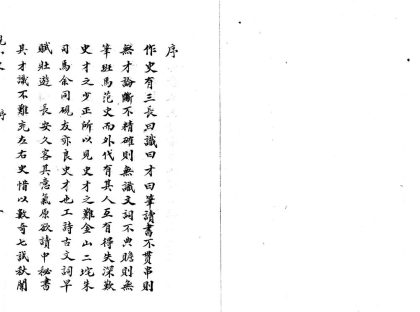 序
作史有三長曰識曰才曰筆讀書不貫串則
無才論斷不精確則無識文詞不典贍則無
筆班馬范史而外代有其人互有得失深歎
史才之少正所以見史才之難金山二垞朱
司馬余同硯友亦良史才也工詩古文詞早
賦壯遊長安久客其意氣原欲讀中秘書
具才識不難充左右史惜以數奇七試秋闈